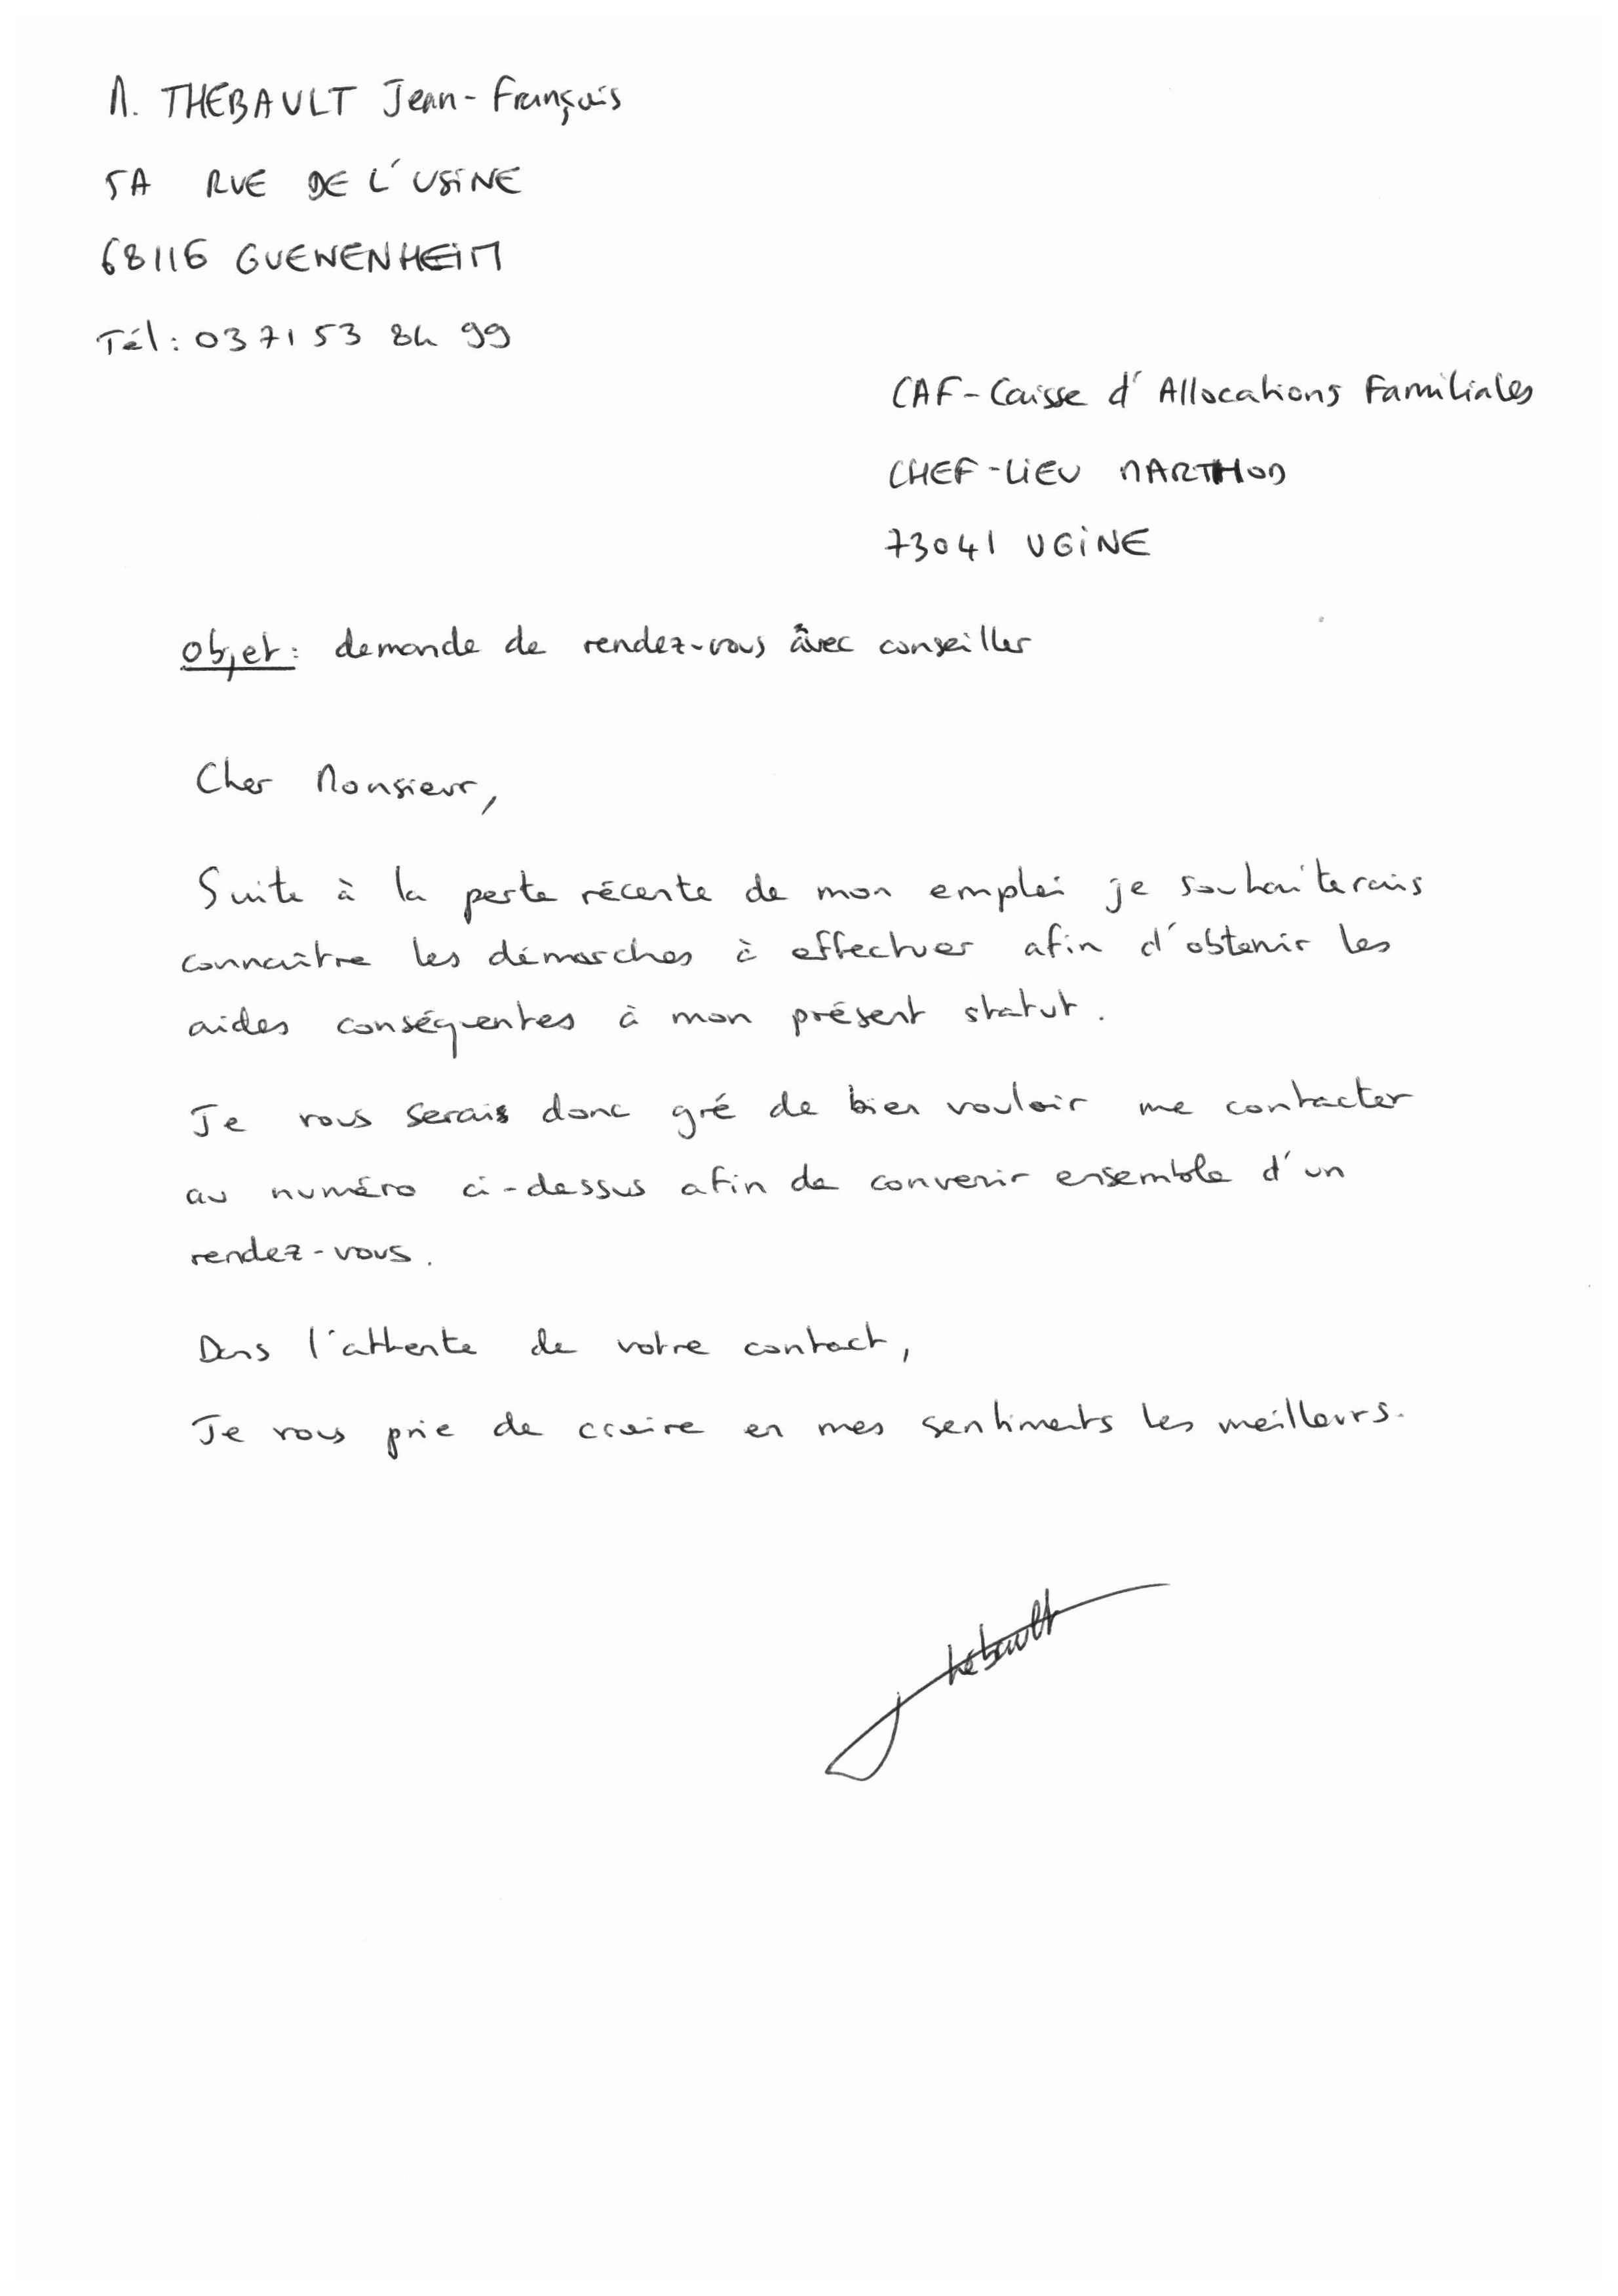 M. THEBAULT Jean-François
5A RUE DE L'USINE
68116 GUEWENHEIM
Tél: 03 71 53 84 99
CAF-Caisse d'Allocations Familiales
CHEF-LIEU MARTHOD
73041 UGINE
Objet: demande de rendez-vous avec conseiller
Cher Monsieur,
Suite à la perte récente de mon emploi je souhaiterais
connaître les démarches à effectuer afin d'obtenir les
aides conséquentes à mon présent statut.
Je vous serais donc gré de bien vouloir me contacter
au numéro ci-dessus afin de convenir ensemble d'un
rendez-vous.
Dans l'attente de votre contact,
Je vous prie de croire en mes sentiments les meilleurs.